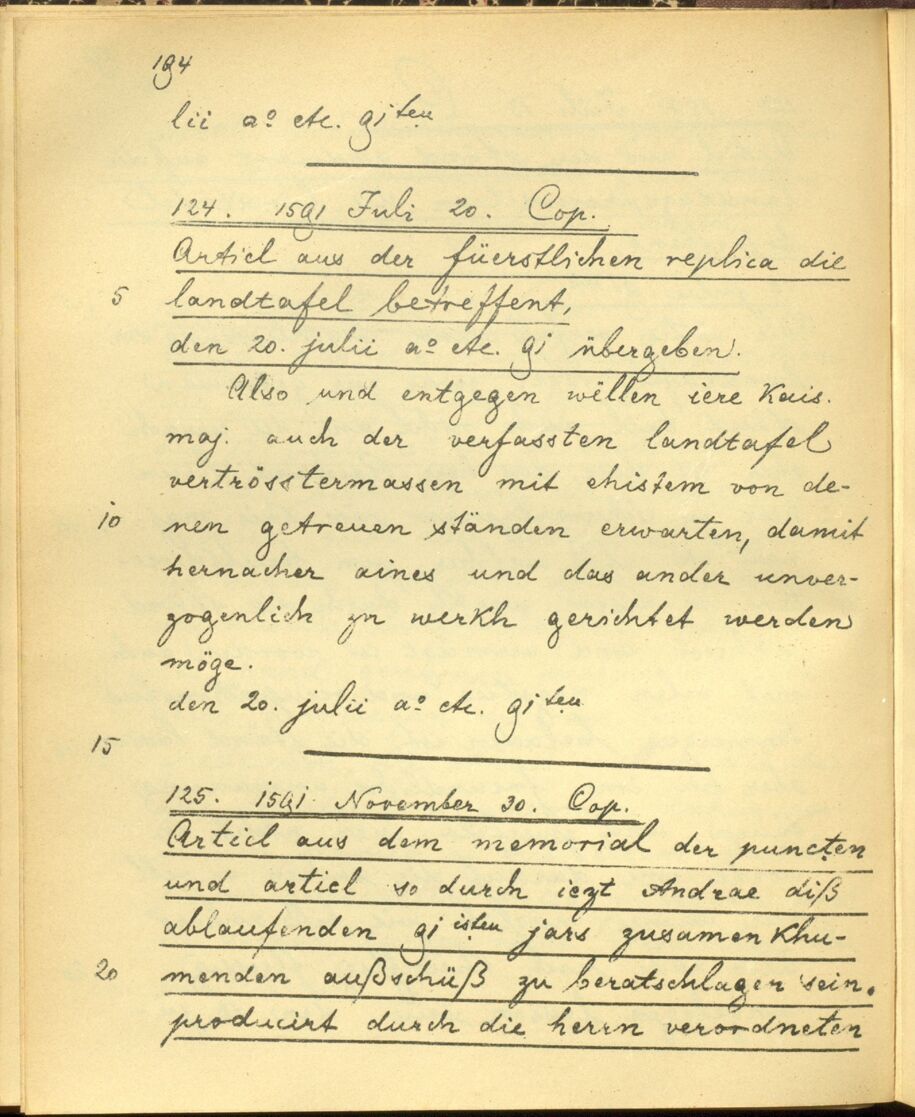 194
lii aº etc. 91 ten
124. 1591 Juli 20. Cop.
Articl aus der füerstlichen replica die
5 landtafel betreffent,
den 20. julii aº etc. 91 übergeben.
Also und entgegen wëllen iere Kais.
maj. auch der verfassten landtafel
vertrösstermassen mit ehistem von de-
10 nen getreuen ständen erwarten, damit
hernacher aines und das ander unver-
zogenlich zu werkh gerichtet werden
möge.
den 20. julii aº etc. 91 ten
15
125. 1591 November 30. Cop.
Articl aus dem memorial der puncten
und articl so durch iezt Andrae diß
ablaufenden 91 isten jars zusamen khu-
20 menden außschüß zu beratschlagen sein.
producirt durch die herrn verordneten